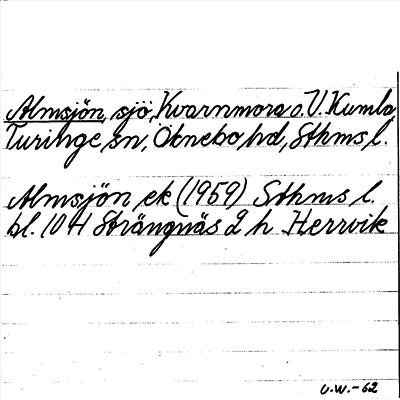 Almsjön, sjö, Kvarnmora o. V. Kumla,
Turinge sn, Öknebo hd, Sthms l.
Almsjön ek (1959) Sthms l.
bl. 10 H Strängnäs 2 h Herrvik
U.W.-62